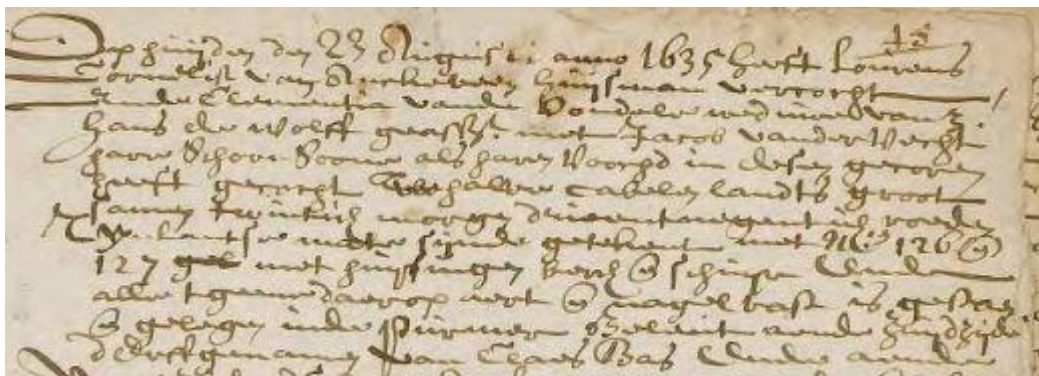 Op huijden den 23 Augusti anno 1635 heeft Lourens
Cornelisz van huijsman vercocht
Ende Clementia vande Vondele weduwe van
Hans de Wolff geassist. met Jacob vander Vecht
hare Schoon Soone als haren Voochd in desen gecoren
heeft gecocht twe halve cabelen landts groot
samen twintich morgen drieentnegentich roeden
lantse mate sijnde getekent met No. 126 en
127 met huijsingen berch en schuijre Ende
alle tgeene daerop aert en nagel vast is gestaen
en gelegen inde Purmer belent aende zuijdzijde
d'Erffgenamen van Claes Bas Ende aende